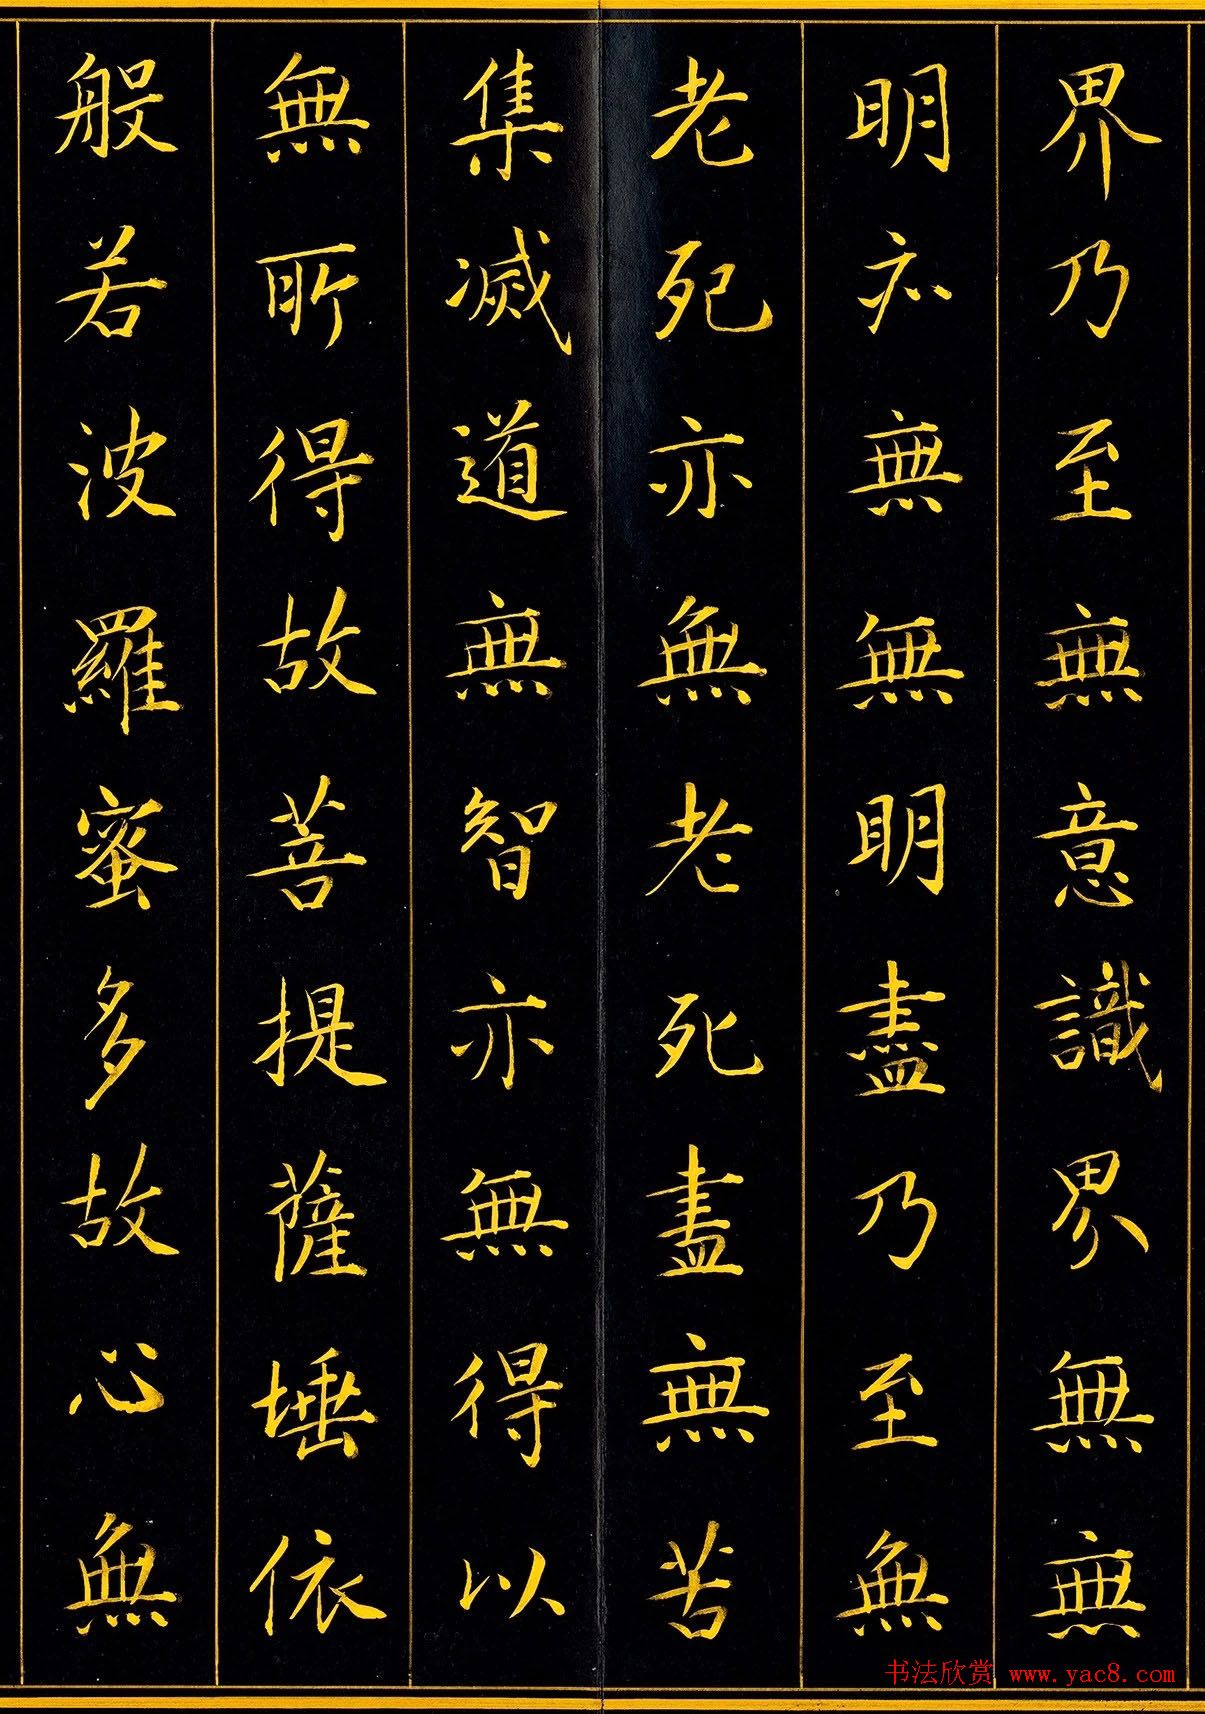 界乃至無意識界無無
明亦無無明盡乃至無
老死亦無老死盡無苦
集滅道無智亦無得以
無所得故菩提薩埵依
般若波羅蜜多故心無
书法欣赏 www.yac8.com